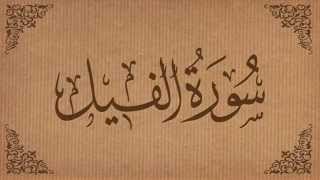 سُورَةُ الفِيل